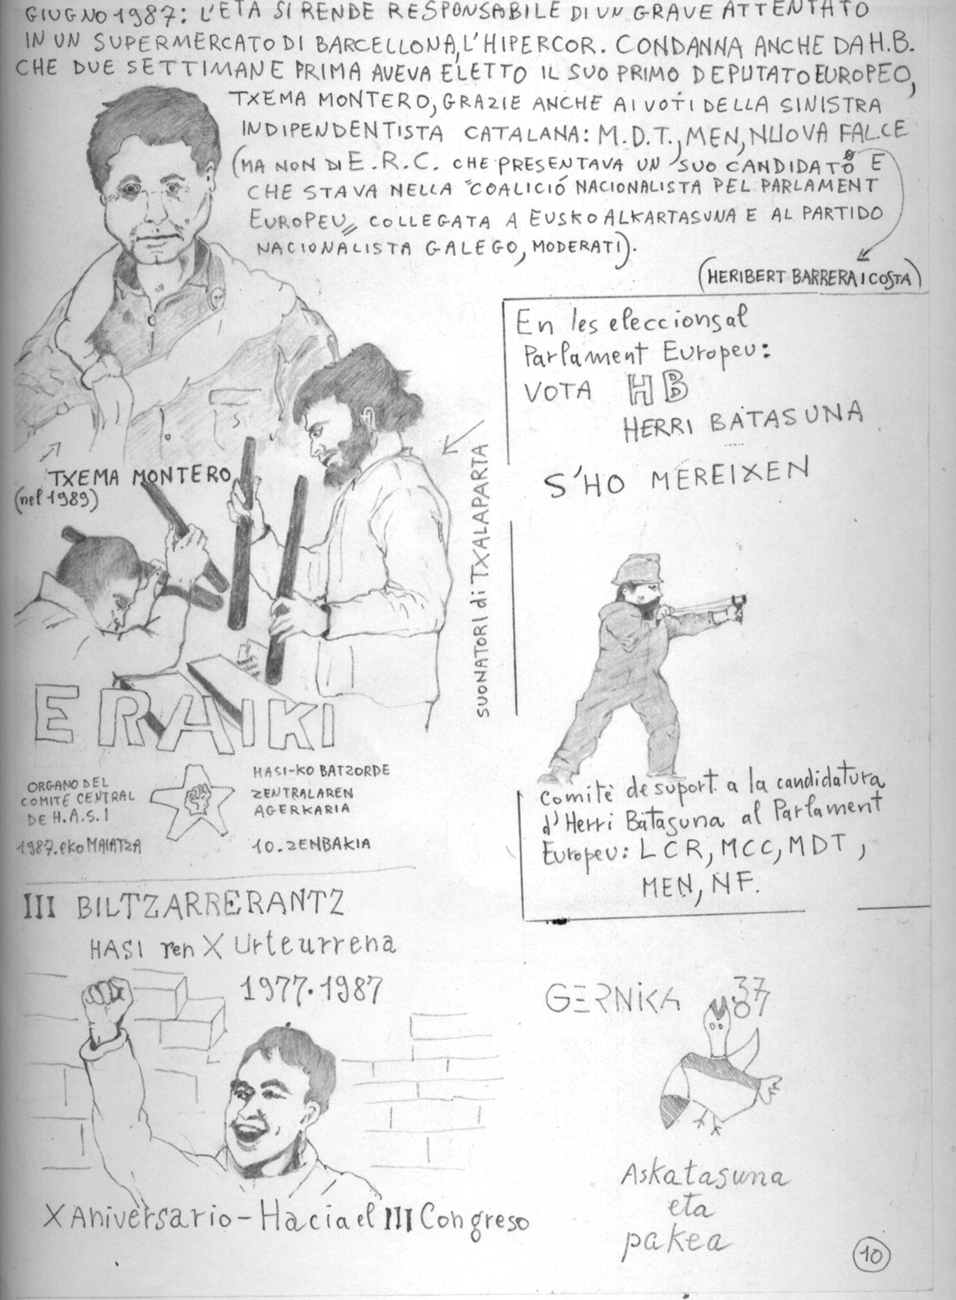 GIUGNO 1987: L'ETA SI RENDE RESPONSABILE DI UN GRAVE ATTENTATO
IN UN SUPERMERCATO DI BARCELLONA, L'HIPERCOR. CONDANNA ANCHE DA H.B.
CHE DUE SETTIMANE PRIMA AVEVA ELETTO IL SUO PRIMO DEPUTATO EUROPEO,
TXEMA MONTERO, GRAZIE ANCHE AI VOTI DELLA SINISTRA
INDIPENDENTISTA CATALANA: M.D.T., MEN, NUOVA FALCE
(MA NON DI E.R.C. CHE PRESENTAVA UN SUO CANDIDATO E
CHE STAVA NELLA "COALICIÓ NACIONALISTA PEL PARLAMENT
EUROPEU" COLLEGATA A EUSKO ALKARTASUNA E AL PARTIDO
NACIONALISTA GALEGO, MODERATI).
(HERIBERT BARRERA I COSTA)
TXEMA MONTERO
(nel 1989)
SUONATORI di TXALAPARTA
ERAIKI
ORGANO DEL
COMITÉ CENTRAL
DE H.A.S.I
1987.eko MAIATZA
HASI-KO BATZORDE
ZENTRALAREN
AGERKARIA
10. ZENBAKIA
En les eleccions al
Parlament Europeu:
VOTA HB
HERRI BATASUNA
S'HO MEREIXEN
Comitè de suport a la candidatura
d'Herri Batasuna al Parlament
Europeu: LCR, MCC, MDT,
MEN, NF.
III BILTZARRERANTZ
HASI ren X Urteurrena
1977·1987
X Aniversario - Hacia el III Congreso
GERNIKA 37
87
Askatasuna
eta
pakea
10